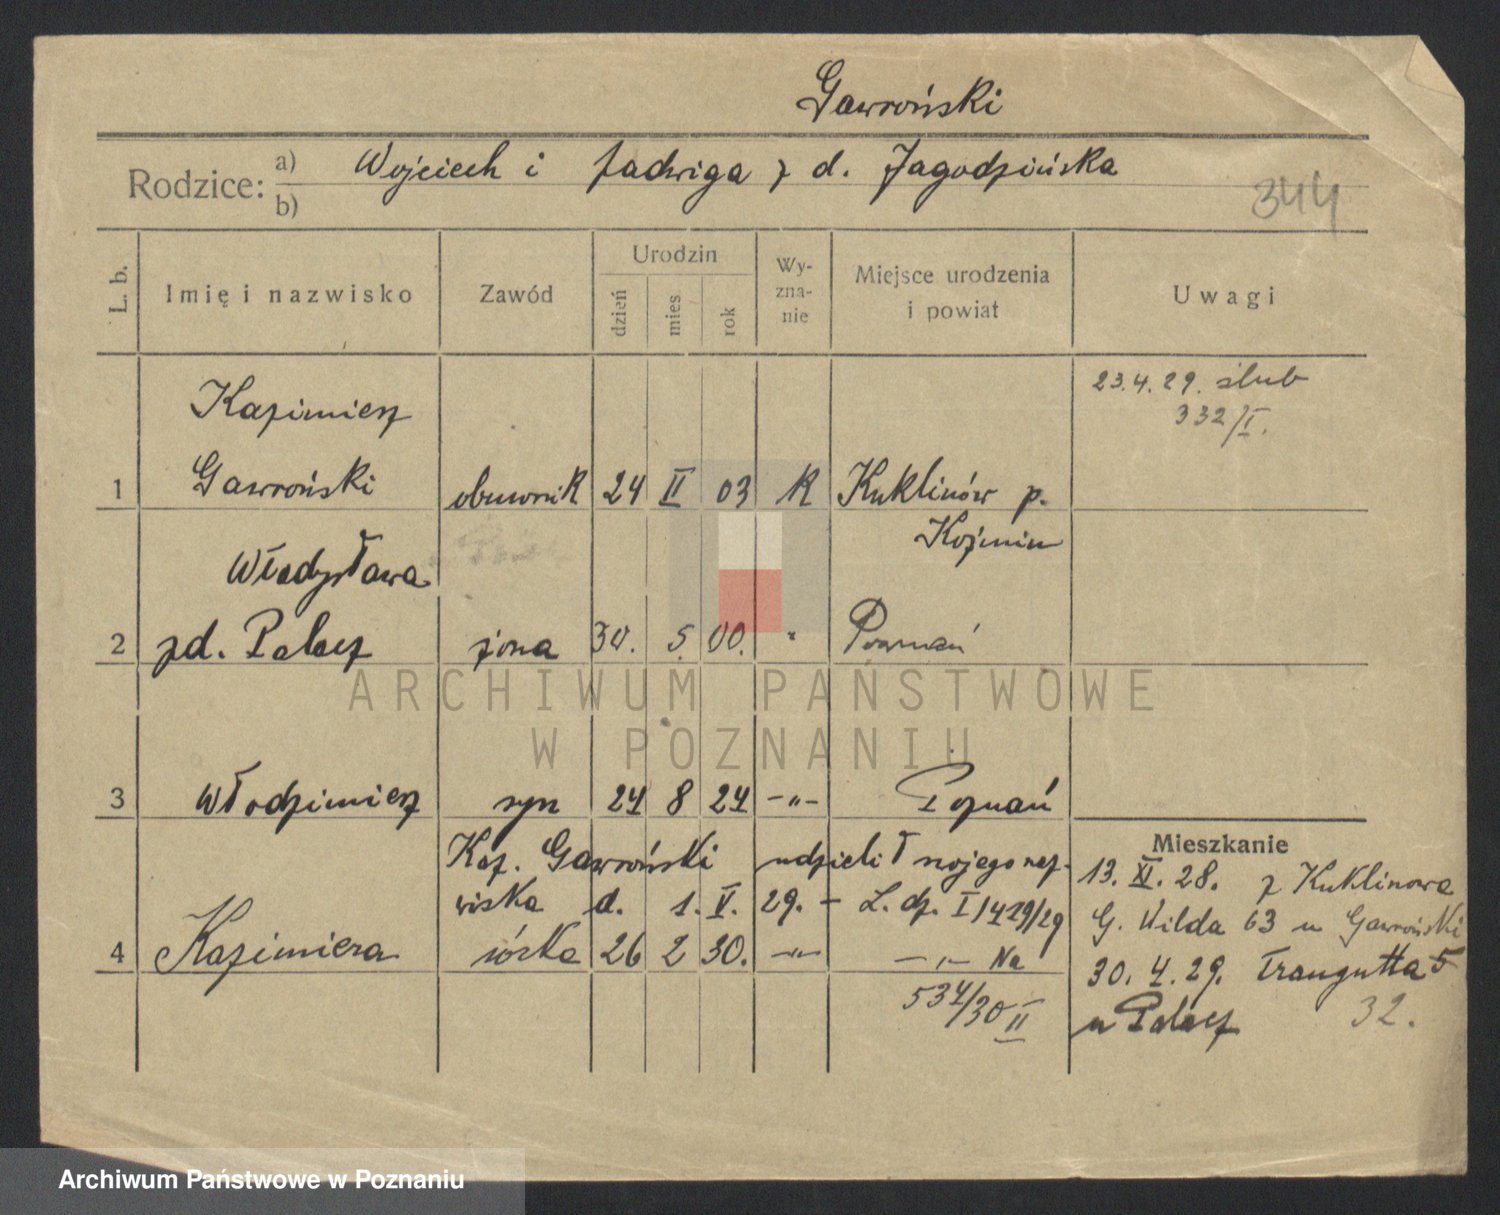 Gawroński
Rodzice: a) Wojciech i Jadwiga z d. Jagodzińska
b)
344
L. b. Imię i nazwisko Zawód Urodzin dzień mies rok Wy-zna-nie Miejsce urodzenia i powiat Uwagi
23.4.29. ślub
332/I.
Kazimierz
1 Gawroński obuwnik 24 II 03 R Kuklinów p.
Koźmin
Władysława
2 zd. Palacz żona 30. 5. 00. " Poznań
ARCHIWUM PAŃSTWOWE
W POZNANIU
3 Włodzimierz syn 24 8 24 -"- Poznań
Kaz. Gawroński udzielił swojego naz-
wiska d. 1. V. 29. - L. dz. I/419/29
4 Kazimiera córka 26 2 30. -"- -"- Na
534/30 II
Mieszkanie
13. XI. 28. z Kuklinowa
G. Wilda 63 u Gawroński
30. 4. 29. Traugutta 5
u Palacz 32.
Archiwum Państwowe w Poznaniu